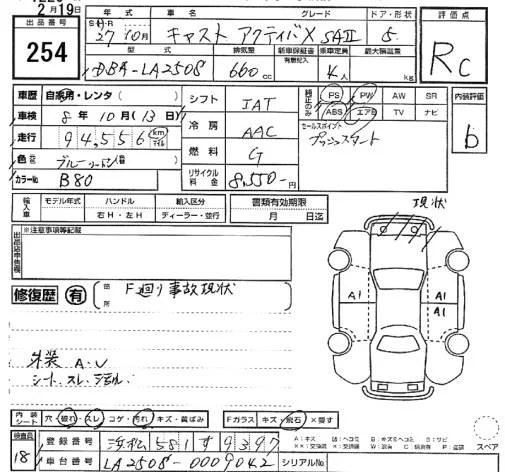 2月19日
出品番号 254
年式 S・H・R 27年10月 車名 キャスト アクティバX SAII グレード ドア・形状 5
型式 DBA-LA250S 排気量 660cc 新車保証書 有 記録簿 乗車定員 4人 最大積載量 kg
評価点 Rc
車歴 自家用・レンタ( )
車検 8年10月(13日)
走行 94,556 km マイル
色 ブルー
カラーNo B80
シフト IAT
冷房 AAC
燃料 G
リサイクル料金 8,550-円
純正のみ PS PW AW SR
ABS エアB TV ナビ
セールスポイント
プッシュスタート
内装評価 b
輸入車 モデル年式 ハンドル 右H・左H 輸入区分 ディーラー・並行
書類有効期限 月 日迄
現状
出品店申告欄 ※注意事項等記載
修復歴 有 箇所 F廻り事故現状
A1 A1
外装 A.U
シート.スレ
内装シート 穴・破れ・スレ コゲ・汚れ キズ・黄ばみ Fガラス キズ・飛石 ×要す
検査員 18
登録番号 浜松 581 す 9397
車台番号 LA250S-0009042 シリアルNo
スペア